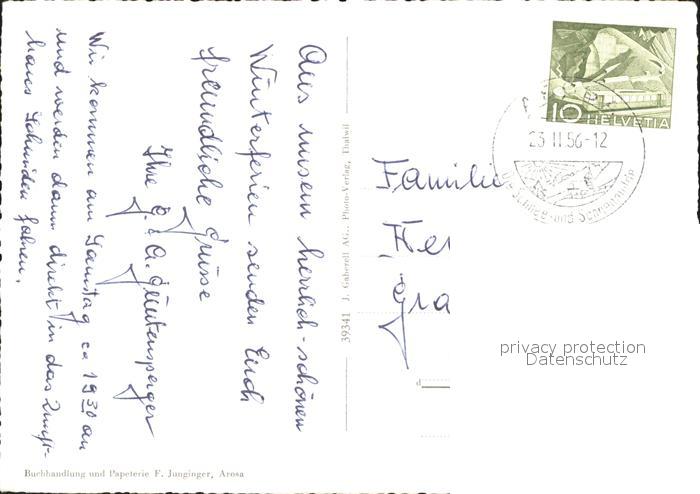 Aus unsern herrlich-schönen
Winterferien senden Euch
freundliche Grüsse
Ihre
Wir kommen am Samstag ca 19 30 an
und werden dann direkt in das Zunft-
haus fahren.
39341 J. Gaberell AG., Photo-Verlag, Thalwil
Buchhandlung und Papeterie F. Junginger, Arosa
10 HELVETIA
23 II 56-12
Schnee- und Sonnen
Familie
Gra
privacy protection
Datenschutz